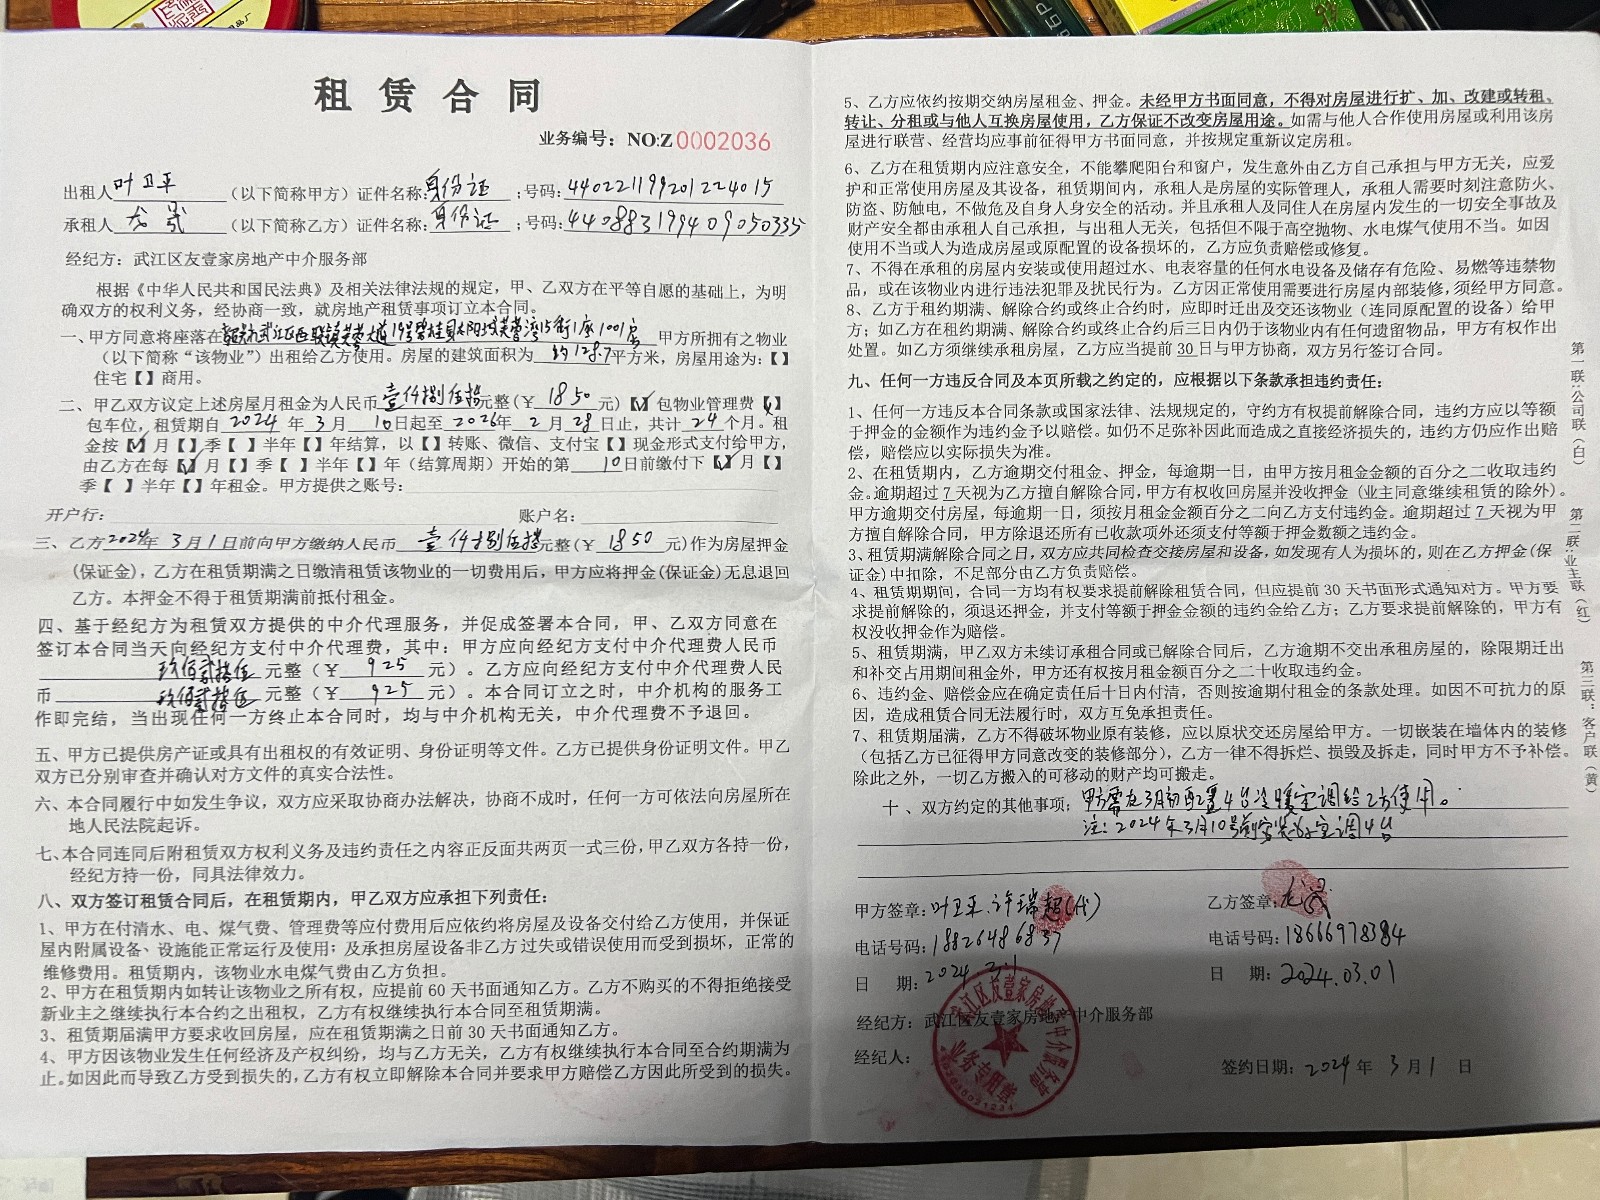 租赁合同
业务编号：NO:Z0002036
出租人叶卫平（以下简称甲方）证件名称:身份证；号码:440221199201224015
承租人龙（以下简称乙方）证件名称:身份证；号码:440883199409050335
经纪方：武江区友壹家房地产中介服务部
根据《中华人民共和国民法典》及相关法律法规的规定，甲、乙双方在平等自愿的基础上，为明
确双方的权利义务，经协商一致，就房地产租赁事项订立本合同。
一、甲方同意将座落在韶关市武江区西联镇芙蓉大道19号碧桂园太阳城芙蓉湾15街1座1001房 甲方所拥有之物业
（以下简称“该物业”）出租给乙方使用。房屋的建筑面积为 约128.7平方米，房屋用途为：【】
住宅【】商用。
二、甲乙双方议定上述房屋月租金为人民币壹仟捌佰伍拾元整（￥ 1850 元）【✓】包物业管理费【】
包车位，租赁期自 2024 年 3 月 10 日起至 2026 年 2 月 28 日止，共计 24 个月。租
金按【✓】月【 】季【 】半年【 】年结算，以【 】转账、微信、支付宝【 】现金形式支付给甲方，
由乙方在每【✓】月【 】季【 】半年【 】年（结算周期）开始的第 10 日前缴付下【✓】月【 】
季【 】半年【 】年租金。甲方提供之账号：
开户行： 账户名：
三、乙方2024年 3 月 1 日前向甲方缴纳人民币 壹仟捌佰伍拾元整（￥ 1850 元)作为房屋押金
(保证金)，乙方在租赁期满之日缴清租赁该物业的一切费用后，甲方应将押金(保证金)无息退回
乙方。本押金不得于租赁期满前抵付租金。
四、基于经纪方为租赁双方提供的中介代理服务，并促成签署本合同，甲、乙双方同意在
签订本合同当天向经纪方支付中介代理费，其中：甲方应向经纪方支付中介代理费人民币
玖佰贰拾伍 元整（￥ 925 元）。乙方应向经纪方支付中介代理费人民
币 玖佰贰拾伍 元整（￥ 925 元）。本合同订立之时，中介机构的服务工
作即完结，当出现任何一方终止本合同时，均与中介机构无关，中介代理费不予退回。
五、甲方已提供房产证或具有出租权的有效证明、身份证明等文件。乙方已提供身份证明文件。甲乙
双方已分别审查并确认对方文件的真实合法性。
六、本合同履行中如发生争议，双方应采取协商办法解决，协商不成时，任何一方可依法向房屋所在
地人民法院起诉。
七、本合同连同后附租赁双方权利义务及违约责任之内容正反面共两页一式三份，甲乙双方各持一份，
经纪方持一份，同具法律效力。
八、双方签订租赁合同后，在租赁期内，甲乙双方应承担下列责任：
1、甲方在付清水、电、煤气费、管理费等应付费用后应依约将房屋及设备交付给乙方使用，并保证
屋内附属设备、设施能正常运行及使用；及承担房屋设备非乙方过失或错误使用而受到损坏，正常的
维修费用。租赁期内，该物业水电煤气费由乙方负担。
2、甲方在租赁期内如转让该物业之所有权，应提前 60 天书面通知乙方。乙方不购买的不得拒绝接受
新业主之继续执行本合约之出租权，乙方有权继续执行本合同至租赁期满。
3、租赁期届满甲方要求收回房屋，应在租赁期满之日前 30 天书面通知乙方。
4、甲方因该物业发生任何经济及产权纠纷，均与乙方无关，乙方有权继续执行本合同至合约期满为
止。如因此而导致乙方受到损失的，乙方有权立即解除本合同并要求甲方赔偿乙方因此所受到的损失。
5、乙方应依约按期交纳房屋租金、押金。未经甲方书面同意，不得对房屋进行扩、加、改建或转租、
转让、分租或与他人互换房屋使用，乙方保证不改变房屋用途。如需与他人合作使用房屋或利用该房
屋进行联营、经营均应事前征得甲方书面同意，并按规定重新议定房租。
6、乙方在租赁期内应注意安全，不能攀爬阳台和窗户，发生意外由乙方自己承担与甲方无关，应爱
护和正常使用房屋及其设备，租赁期间内，承租人是房屋的实际管理人，承租人需要时刻注意防火、
防盗、防触电，不做危及自身人身安全的活动。并且承租人及同住人在房屋内发生的一切安全事故及
财产安全都由承租人自己承担，与出租人无关，包括但不限于高空抛物、水电煤气使用不当。如因
使用不当或人为造成房屋或原配置的设备损坏的，乙方应负责赔偿或修复。
7、不得在承租的房屋内安装或使用超过水、电表容量的任何水电设备及储存有危险、易燃等违禁物
品，或在该物业内进行违法犯罪及扰民行为。乙方因正常使用需要进行房屋内部装修，须经甲方同意。
8、乙方于租约期满、解除合约或终止合约时，应即时迁出及交还该物业（连同原配置的设备）给甲
方；如乙方在租约期满、解除合约或终止合约后三日内仍于该物业内有任何遗留物品，甲方有权作出
处置。如乙方须继续承租房屋，乙方应当提前 30 日与甲方协商，双方另行签订合同。
九、任何一方违反合同及本页所载之约定的，应根据以下条款承担违约责任：
1、任何一方违反本合同条款或国家法律、法规规定的，守约方有权提前解除合同，违约方应以等额
于押金的金额作为违约金予以赔偿。如仍不足弥补因此而造成之直接经济损失的，违约方仍应作出赔
偿，赔偿应以实际损失为准。
2、在租赁期内，乙方逾期交付租金、押金，每逾期一日，由甲方按月租金金额的百分之二收取违约
金。逾期超过 7 天视为乙方擅自解除合同，甲方有权收回房屋并没收押金（业主同意继续租赁的除外）。
甲方逾期交付房屋，每逾期一日，须按月租金金额百分之二向乙方支付违约金。逾期超过 7 天视为甲
方擅自解除合同，甲方除退还所有已收款项外还须支付等额于押金数额之违约金。
3、租赁期满解除合同之日，双方应共同检查交接房屋和设备，如发现有人为损坏的，则在乙方押金(保
证金)中扣除，不足部分由乙方负责赔偿。
4、租赁期期间，合同一方均有权要求提前解除租赁合同，但应提前 30 天书面形式通知对方。甲方要
求提前解除的，须退还押金，并支付等额于押金金额的违约金给乙方；乙方要求提前解除的，甲方有
权没收押金作为赔偿。
5、租赁期满，甲乙双方未续订承租合同或已解除合同后，乙方逾期不交出承租房屋的，除限期迁出
和补交占用期间租金外，甲方还有权按月租金额百分之二十收取违约金。
6、违约金、赔偿金应在确定责任后十日内付清，否则按逾期付租金的条款处理。如因不可抗力的原
因，造成租赁合同无法履行时，双方互免承担责任。
7、租赁期届满，乙方不得破坏物业原有装修，应以原状交还房屋给甲方。一切嵌装在墙体内的装修
（包括乙方已征得甲方同意改变的装修部分），乙方一律不得拆烂、损毁及拆走，同时甲方不予补偿。
除此之外，一切乙方搬入的可移动的财产均可搬走。
十、双方约定的其他事项：甲方需在3月初配置4台冷暖空调给乙方使用。
注：2024年3月10号前安装好空调4台
甲方签章：叶卫平.许瑞超(代)
电话号码：18826486837
日 期：2024 3.1
经纪方：武江区友壹家房地产中介服务部
经纪人：
乙方签章：龙
电话号码：18666978384
日 期：2024.03.01
签约日期：2024 年 3 月 1 日
武江区友壹家房地产中介服务部
业务专用章
第一联：公司联（白）
第二联：业主联（红）
第三联：客户联（黄）